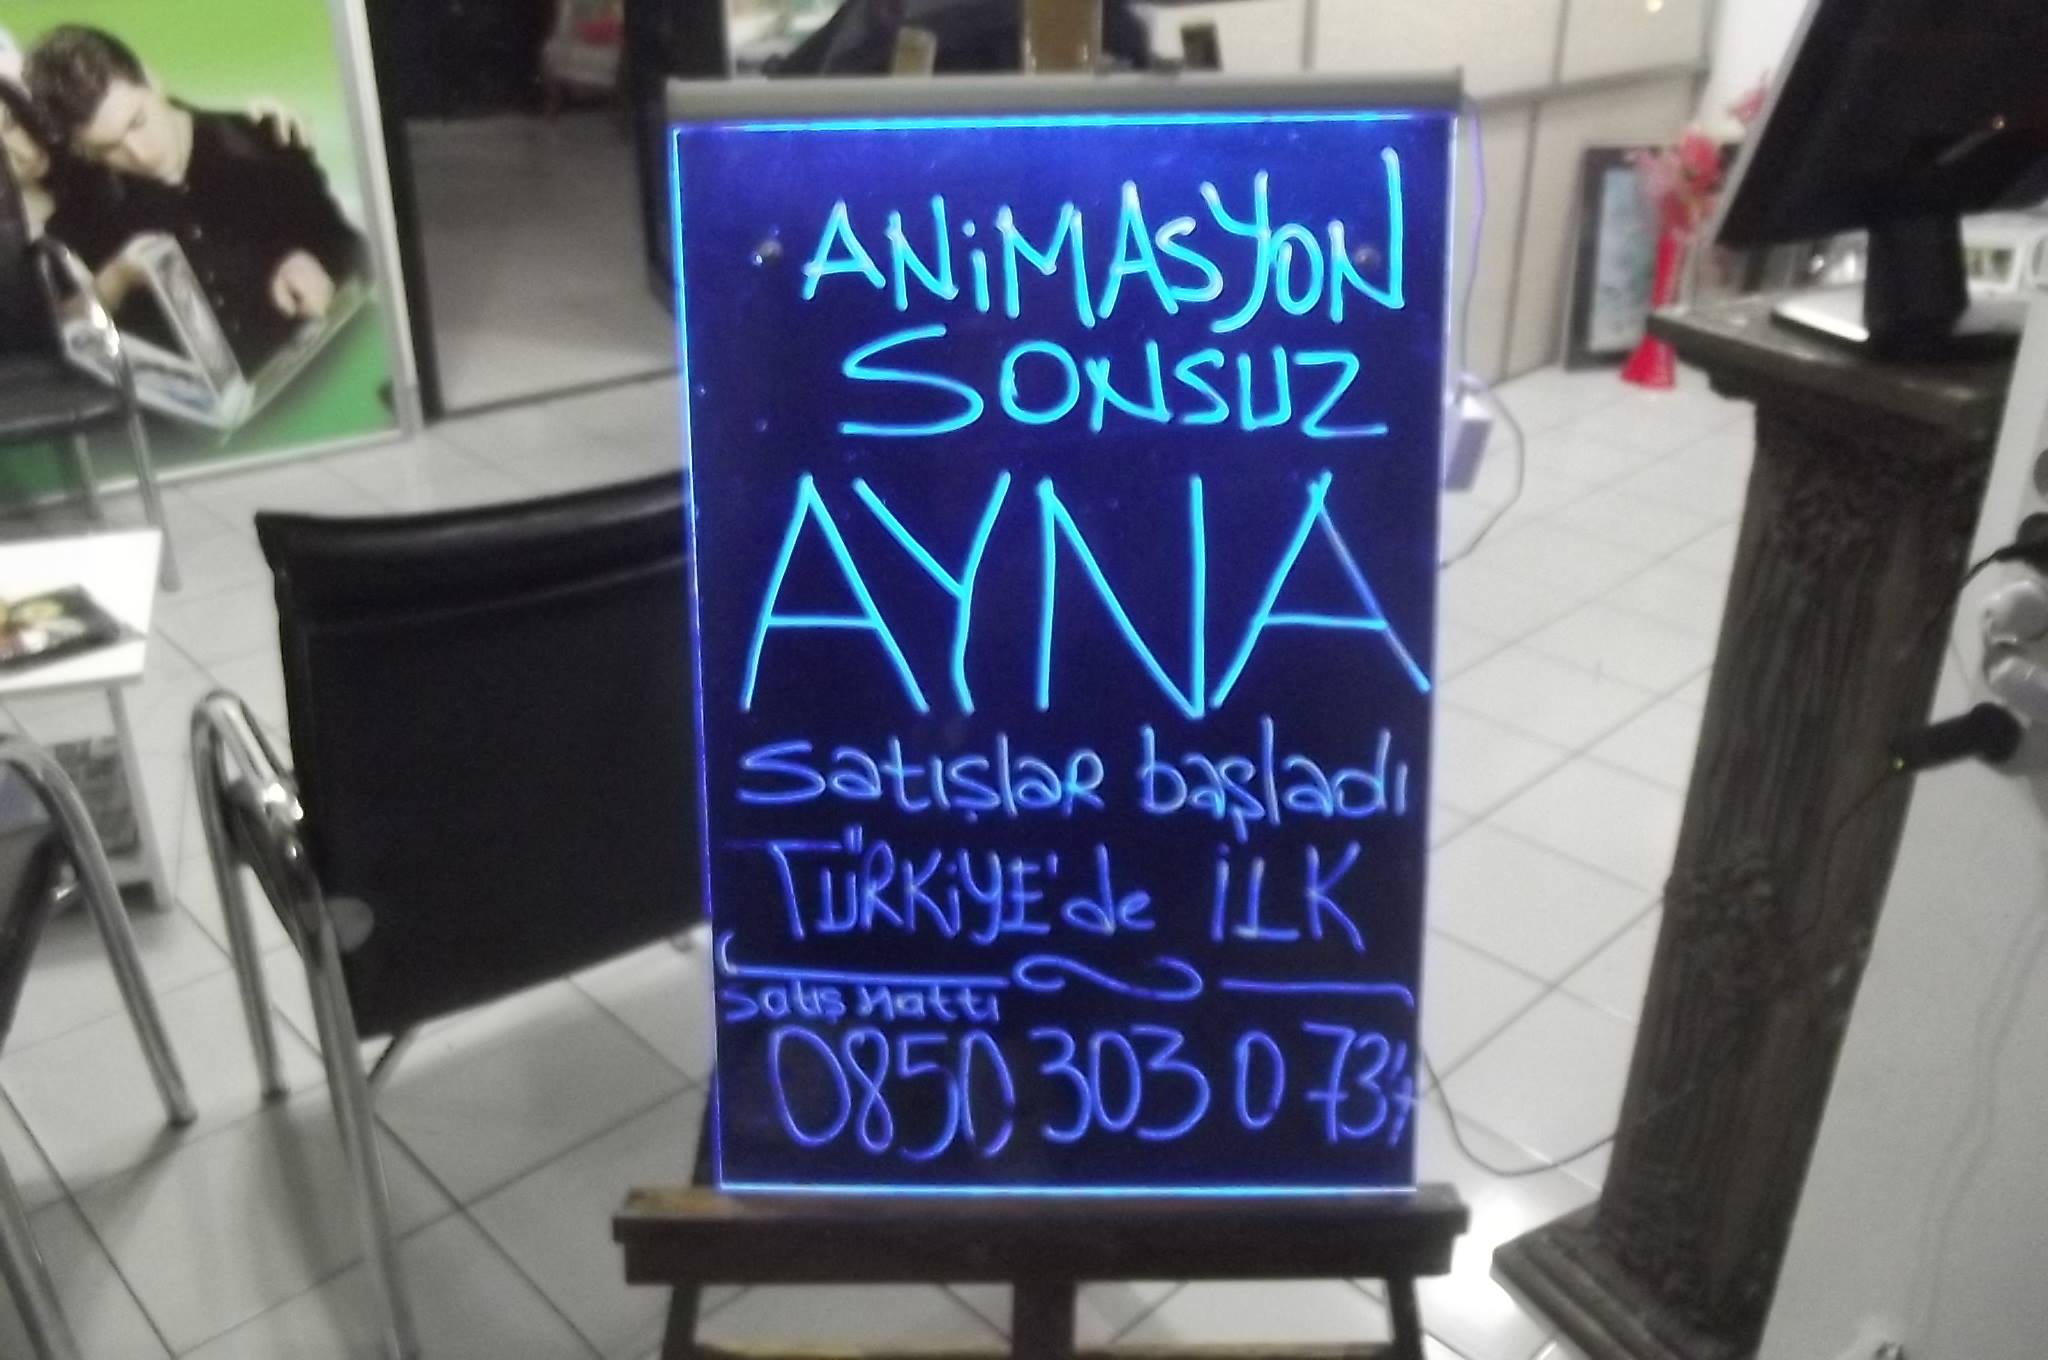 ANiMASYON
SONSUZ
AYNA
satışlaR başladı
TÜRKiYE'de İLK
Satış Hattı
0850 303 0 734